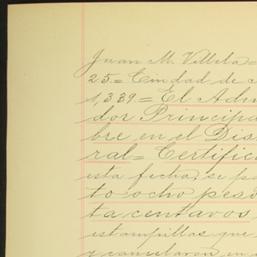 Juan M. Villela=
25= Ciudad de
1,339= El Adm
dor Principa
bre en el Dis
ral= Certific
esta fecha, se pa
to ocho peso
ta centavos
estampillas que
y cancelaron en